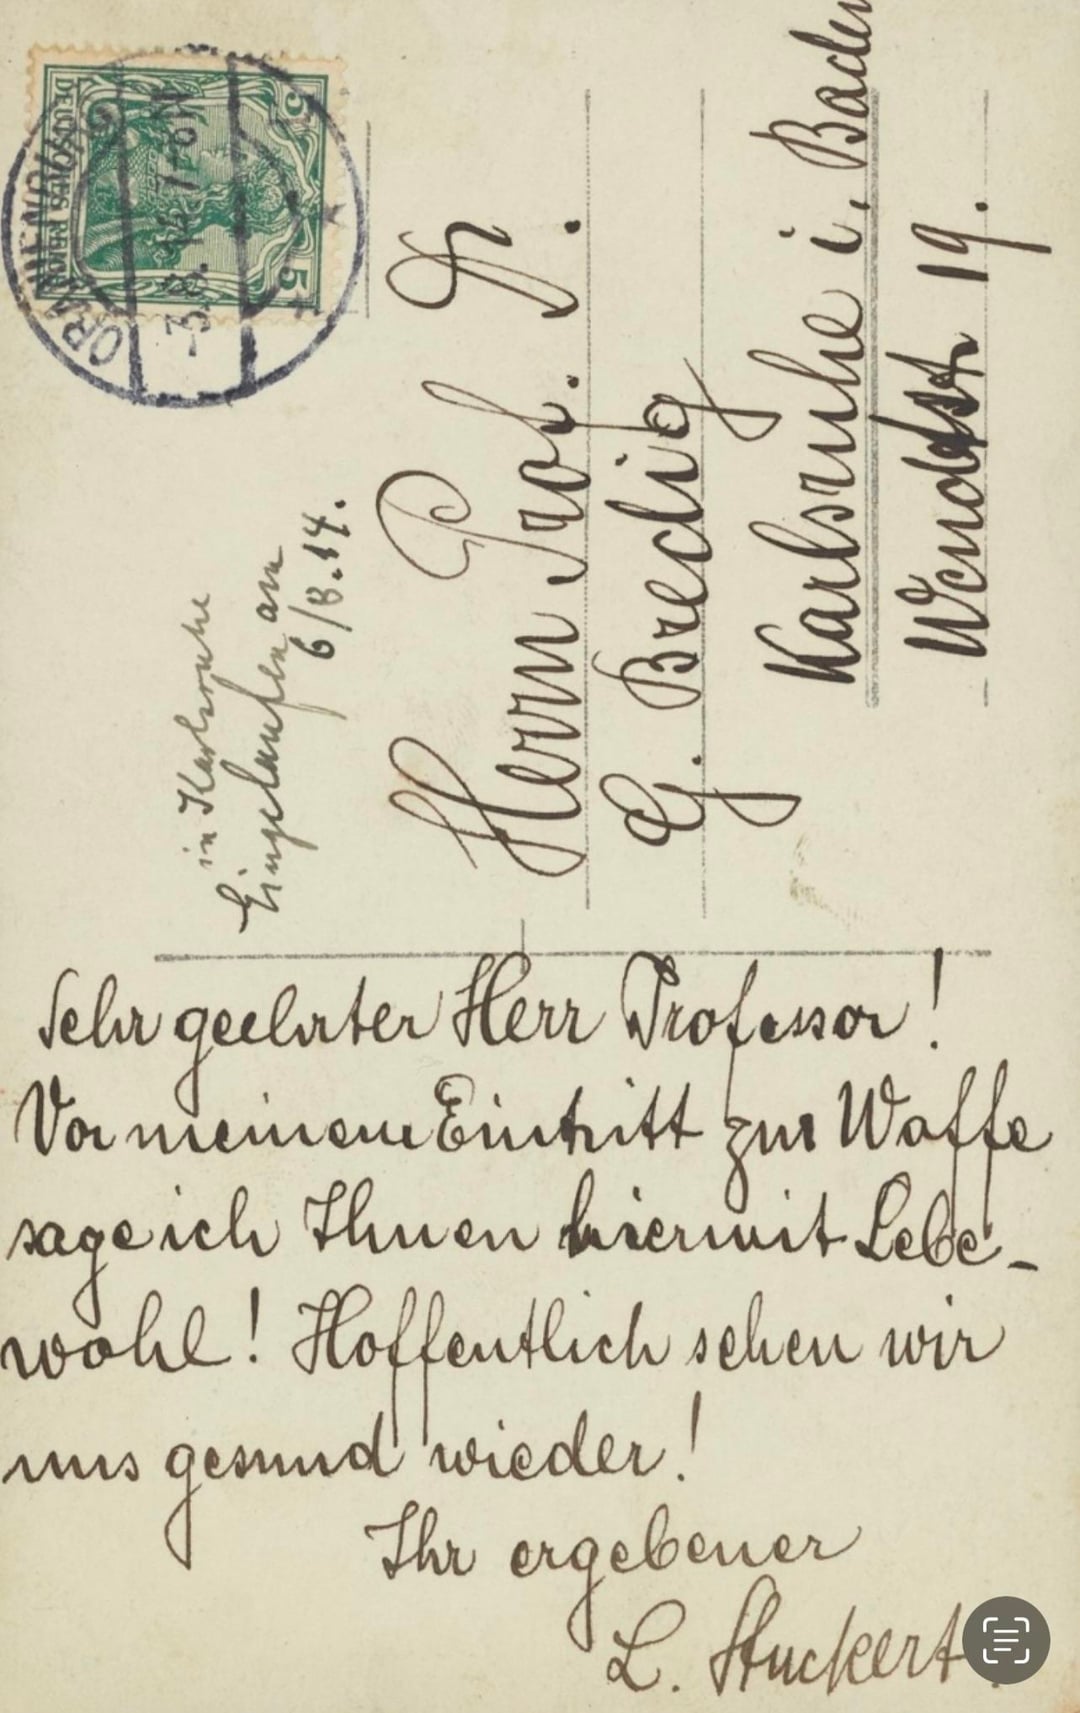 Sehr geehrter Herr Professor!
Vor meinem Eintritt zur Waffe
sage ich Ihnen hiermit Lebe-
wohl! Hoffentlich sehen wir
uns gesund wieder!
Ihr ergebener
L. Stuckert.
in Karlsruhe
Eingelaufen am
6/8.14.
Herrn Prof. Dr.
G. Bredig
Karlsruhe i, Baden
Wendtstr 19.
DEUTSCHES REICH
5 5
-3.8.14. 7-8N